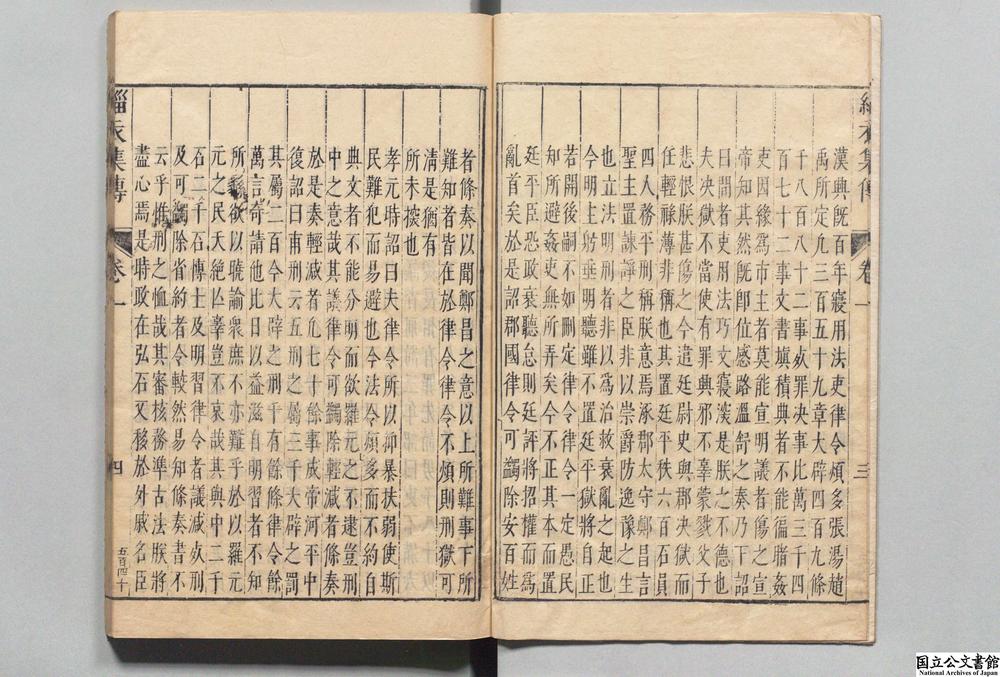 緇衣集傳
卷一
三
漢興旣百年寢用法吏律令煩多張湯趙
禹所定凡三百五十九章大辟四百九條
十八百八十二事死罪決事比萬三千四
百七十二事文書塡積典者不能徧睹姦
吏因緣爲市主者莫能宣明議者傷之宣
帝知其然旣卽位感路溫舒之奏乃下詔
曰間者吏用法巧文寢深是朕之不德也
夫决獄不當使有罪興邪不辜蒙戮父子
悲恨朕甚傷之今遣廷尉史與郡决獄而
任輕祿薄非稱也其置廷平秩六百石員
四人務平刑稱朕意焉涿郡太守鄭昌言
聖王置諫諍之臣非以崇爵防逸豫之生
也立法明刑者非以爲治救衰亂之起也
今明主上躬垂明聽雖不置廷平獄將自正
若開後嗣不如刪定律令律令一定愚民
知所避姦吏無所弄矣今不正其本而置
廷平臣恐政衰聽怠則廷評將招權而爲
亂首矣於是詔郡國律令可蠲除安百姓
者條奏以聞鄭昌之意以上所難事下所
難知者皆在於律令律令不煩則刑獄可
清是猶有
所未按也
孝元時詔曰夫律令所以抑暴扶弱使斯
民難犯而易避也今法令煩多而不約自
典文者不能分明而欲羅元元之不逮豈刑
中之意哉其議律令可蠲除輕減者條奏
於是奏輕減者凡七十餘事成帝河平中
復詔曰甫刑云五刑之屬三千大辟之罰
其屬二百今大辟之刑千有餘條律令餘
萬言奇請他比日以益滋自明習者不知
所欲以曉諭衆庶不亦難乎於以羅元
元之民夭絶亡辜豈不哀哉其與中二千
石二千石博士及明習律令者議減死刑
及可蠲除省約者令較然易知條奏書不
云乎惟刑之恤哉其審核務準古法朕將
盡心焉是時政在弘石又移於外戚名臣
緇衣集傳
卷一
四
五百四十
国立公文書館
National Archives of Japan